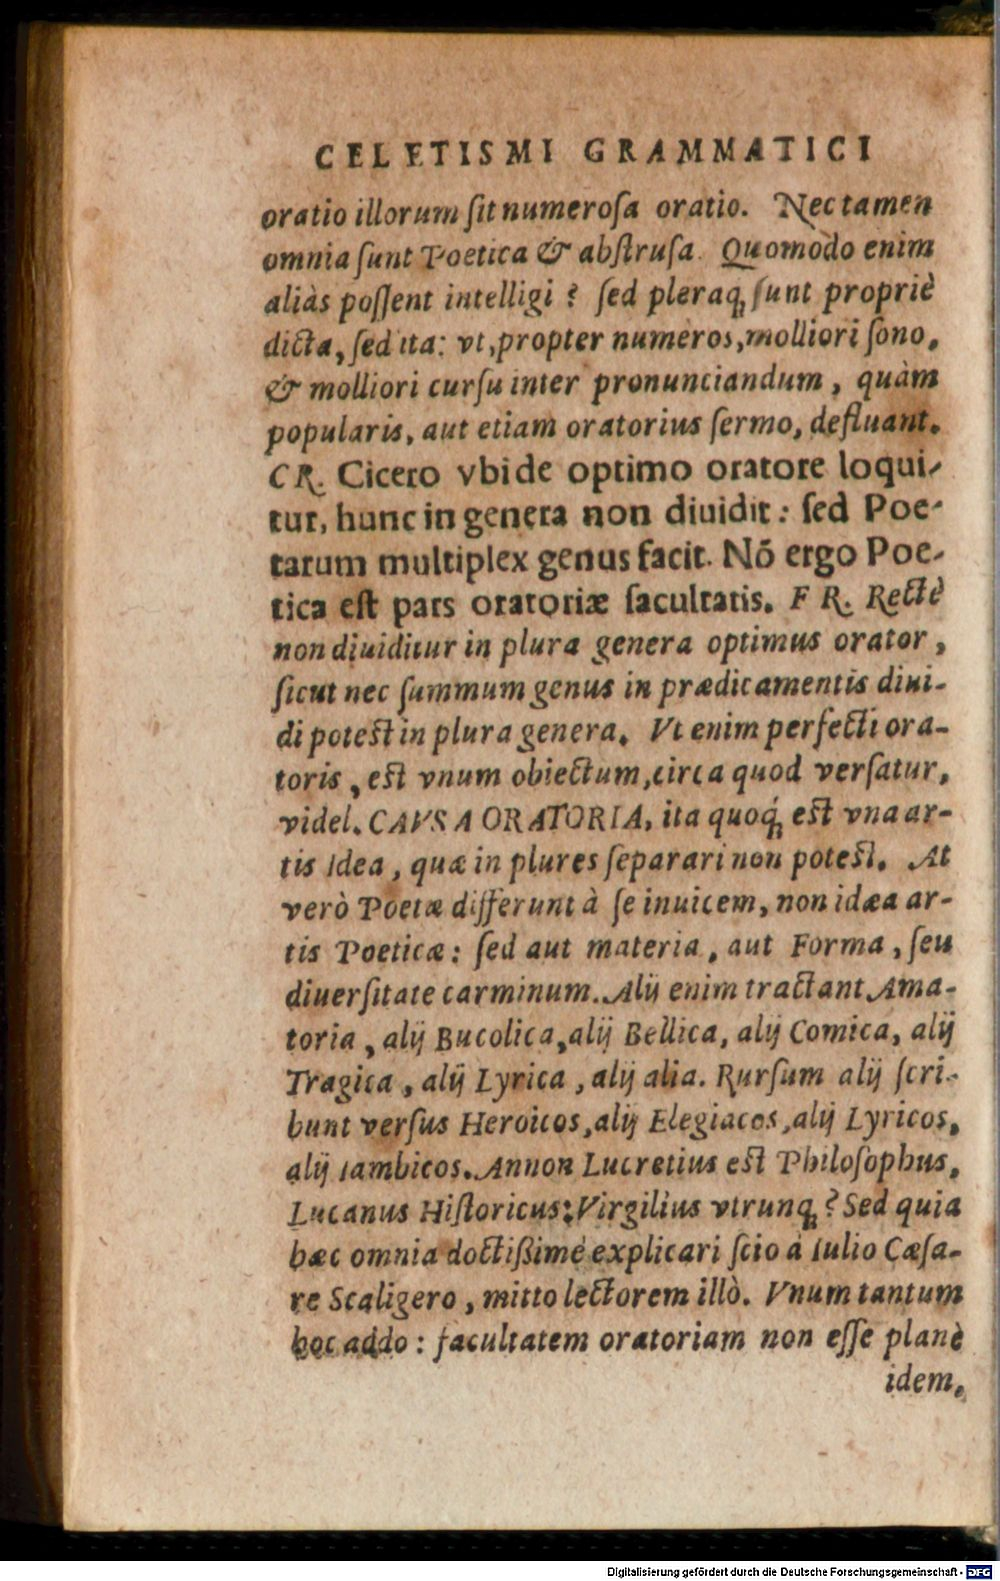 CELETISMI GRAMMATICI
oratio illorum ſit numeroſa oratio. Nec tamen
omnia ſunt Poetica & abſtruſa. Quomodò enim
aliàs poſſent intelligi? ſed pleraq́; ſunt propriè
dicta, ſed ita: vt, propter numeros, molliori ſono,
& molliori curſu inter pronunciandum, quàm
popularis, aut etiam oratorius ſermo, defluant.
CR. Cicero vbi de optimo oratore loqui-
tur, hunc in genera non diuidit: ſed Poe-
tarum multiplex genus facit. Nō ergo Poe-
tica eſt pars oratoriæ facultatis. FR. Rectè
non diuiditur in plura genera optimus orator,
ſicut nec ſummum genus in prædicamentis diui-
di poteſt in plura genera. Vt enim perfecti ora-
toris, eſt vnum obiectum, circa quod verſatur,
videl. CAVSA ORATORIA, ita quoq́; eſt vna ar-
tis Idea, quæ in plures ſeparari non poteſt. At
verò Poetæ differunt à ſe inuicem, non idæa ar-
tis Poeticæ: ſed aut materia, aut Forma, ſeu
diuerſitate carminum. Alij enim tractant Ama-
toria, alij Bucolica, alij Bellica, alij Comica, alij
Tragica, alij Lyrica, alij alia. Rurſum alij ſcri-
bunt verſus Heroicos, alij Elegiacos, alij Lyricos,
alij Iambicos. Annon Lucretius eſt Philoſophus,
Lucanus Hiſtoricus: Virgilius vtrunq;? Sed quia
hæc omnia doctißimè explicari ſcio à Iulio Cæſa-
re Scaligero, mitto lectorem illò. Vnum tantum
hoc addo: facultatem oratoriam non eſſe planè
idem,
Digitalisierung gefördert durch die Deutsche Forschungsgemeinschaft - DFG